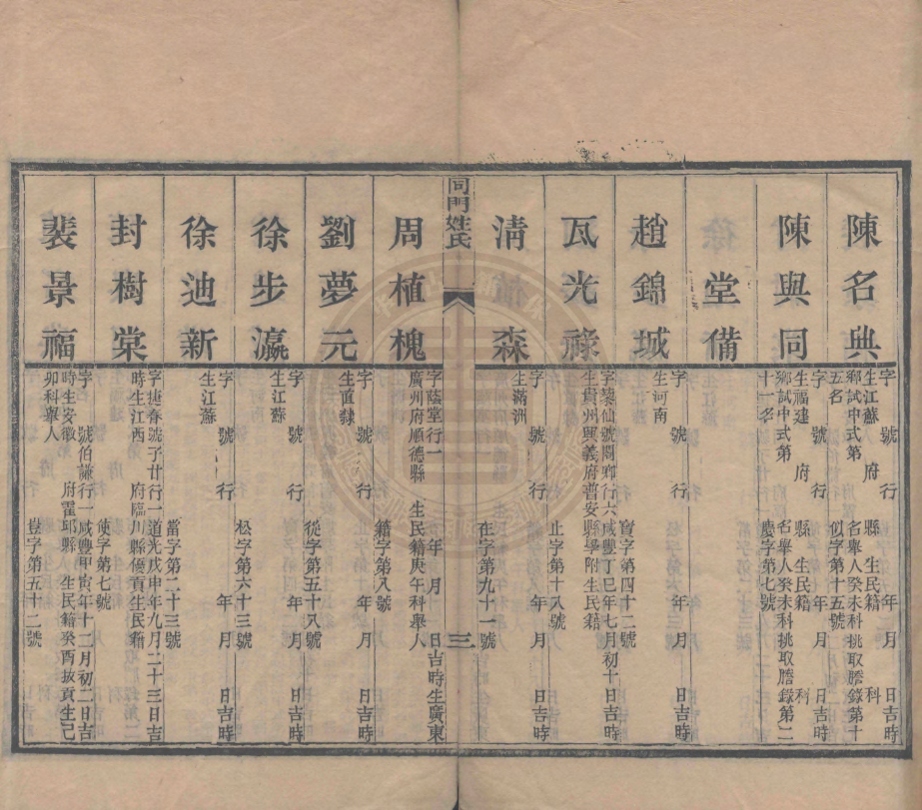 陳名典
字 號 行 年 月 日吉時
生江蘇 府 縣 生民籍 科
鄉試中式第 名舉人癸未科挑取謄錄第十
五名 似字第十五號
陳與同
字 號 行 年 月 日吉時
生福建 府 縣 生民籍 科
鄉試中式第 名舉人癸未科挑取謄錄第二
十一名 慶字第七號
堂備
趙錦城
字 號 行 年 月 日吉時
生河南
寶字第四十二號
瓦光祿
字築仙號閬 行六咸豐丁巳年七月初十日吉時
生貴州興義府普安縣學附生民籍
止字第十八號
清 森
字 號 行 年 月 日吉時
生滿洲
在字第九十一號
同門姓氏
三
周植槐
字蔭堂行一 年 月 日吉時生廣東
廣州府順德縣 生民籍庚午科舉人
籍字第八號
劉夢元
字 號 行 年 月 日吉時
生直隸
從字第五十八號
徐步瀛
字 號 行 年 月 日吉時
生江蘇
松字第六十三號
徐迪新
字 號 行 年 月 日吉時
生江蘇
當字第二十三號
封樹棠
字捷春號子廿行一道光戊申年九月二十三日吉
時生江西 府臨川縣優貢生民籍
使字第七號
裴景福
字 號伯謙行一咸豐甲寅年十二月初二日吉
時生安徽 府霍邱縣 生民籍癸酉拔貢生己
卯科舉人 豈字第五十二號